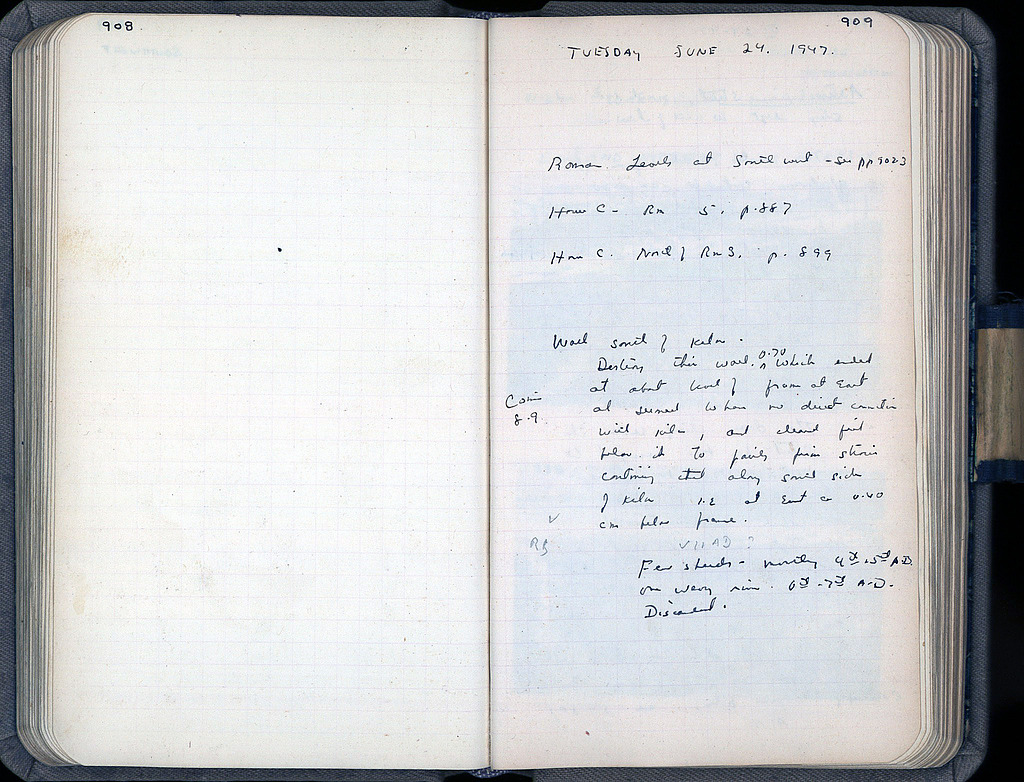 908
909
TUESDAY JUNE 24. 1947.
Roman Levels at South west - See pp 902-3
House C - Rm 5, p. 887
House C. North of Rm 3, p. 899
Wall south of kiln.
Destroy this wall, 0.70 which ended
at about level of frame at East
and seemed to have no direct connection
Coins
8-9
with kiln, and cleared fill
below it to
continuing along south side
of kiln i.e. at East ca 0.40
v
cm below frame.
V 11 AD ?
Few sherds - mostly 4th - 5th A.D.
one wavy rim. 6th - 7th A.D.
Discarded.